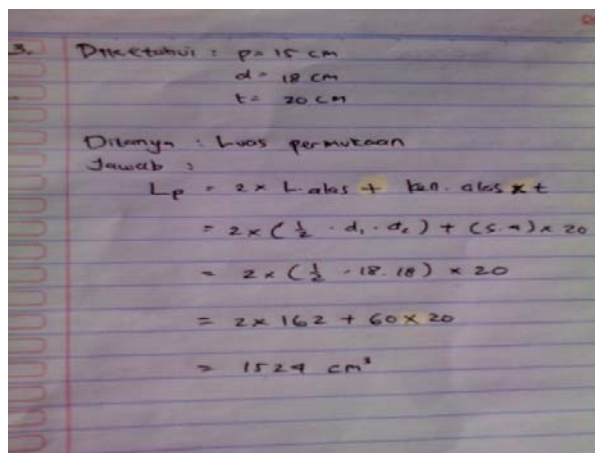 3. Diketahui : p = 15 cm
d = 18 cm
t = 20 cm
Ditanya : Luas permukaan
Jawab :
Lp = 2 x L. alas + kel. alas x t
= 2 x ( 1/2 . d1 . d2 ) + (s.4) x 20
= 2 x ( 1/2 . 18 . 18 ) x 20
= 2 x 162 + 60 x 20
= 1524 cm³